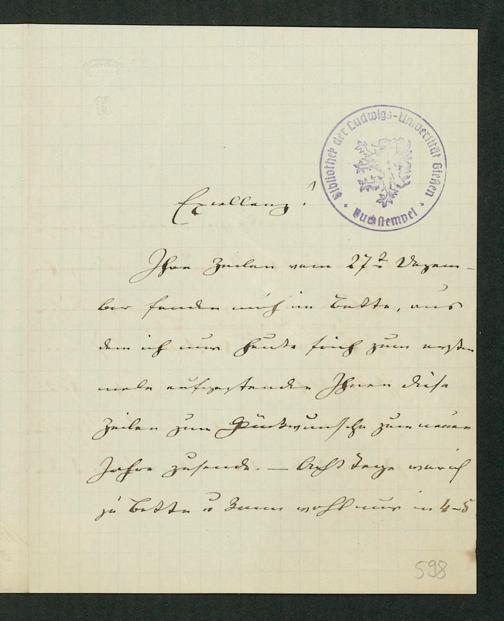 Bibliothek der Ludwigs-Universität Gießen
Buchstempel
Excellenz!
Ihre Zeilen vom 27t Dezem-
ber fanden mich im Bette, aus
dem ich nur heute früh zum ersten
male aufgestanden Ihnen diese
Zeilen zum Glückwunsche zum neuen
Jahre zusende. — Acht Tage war ich
zu Bette u kann wohl nur in 4-5
598